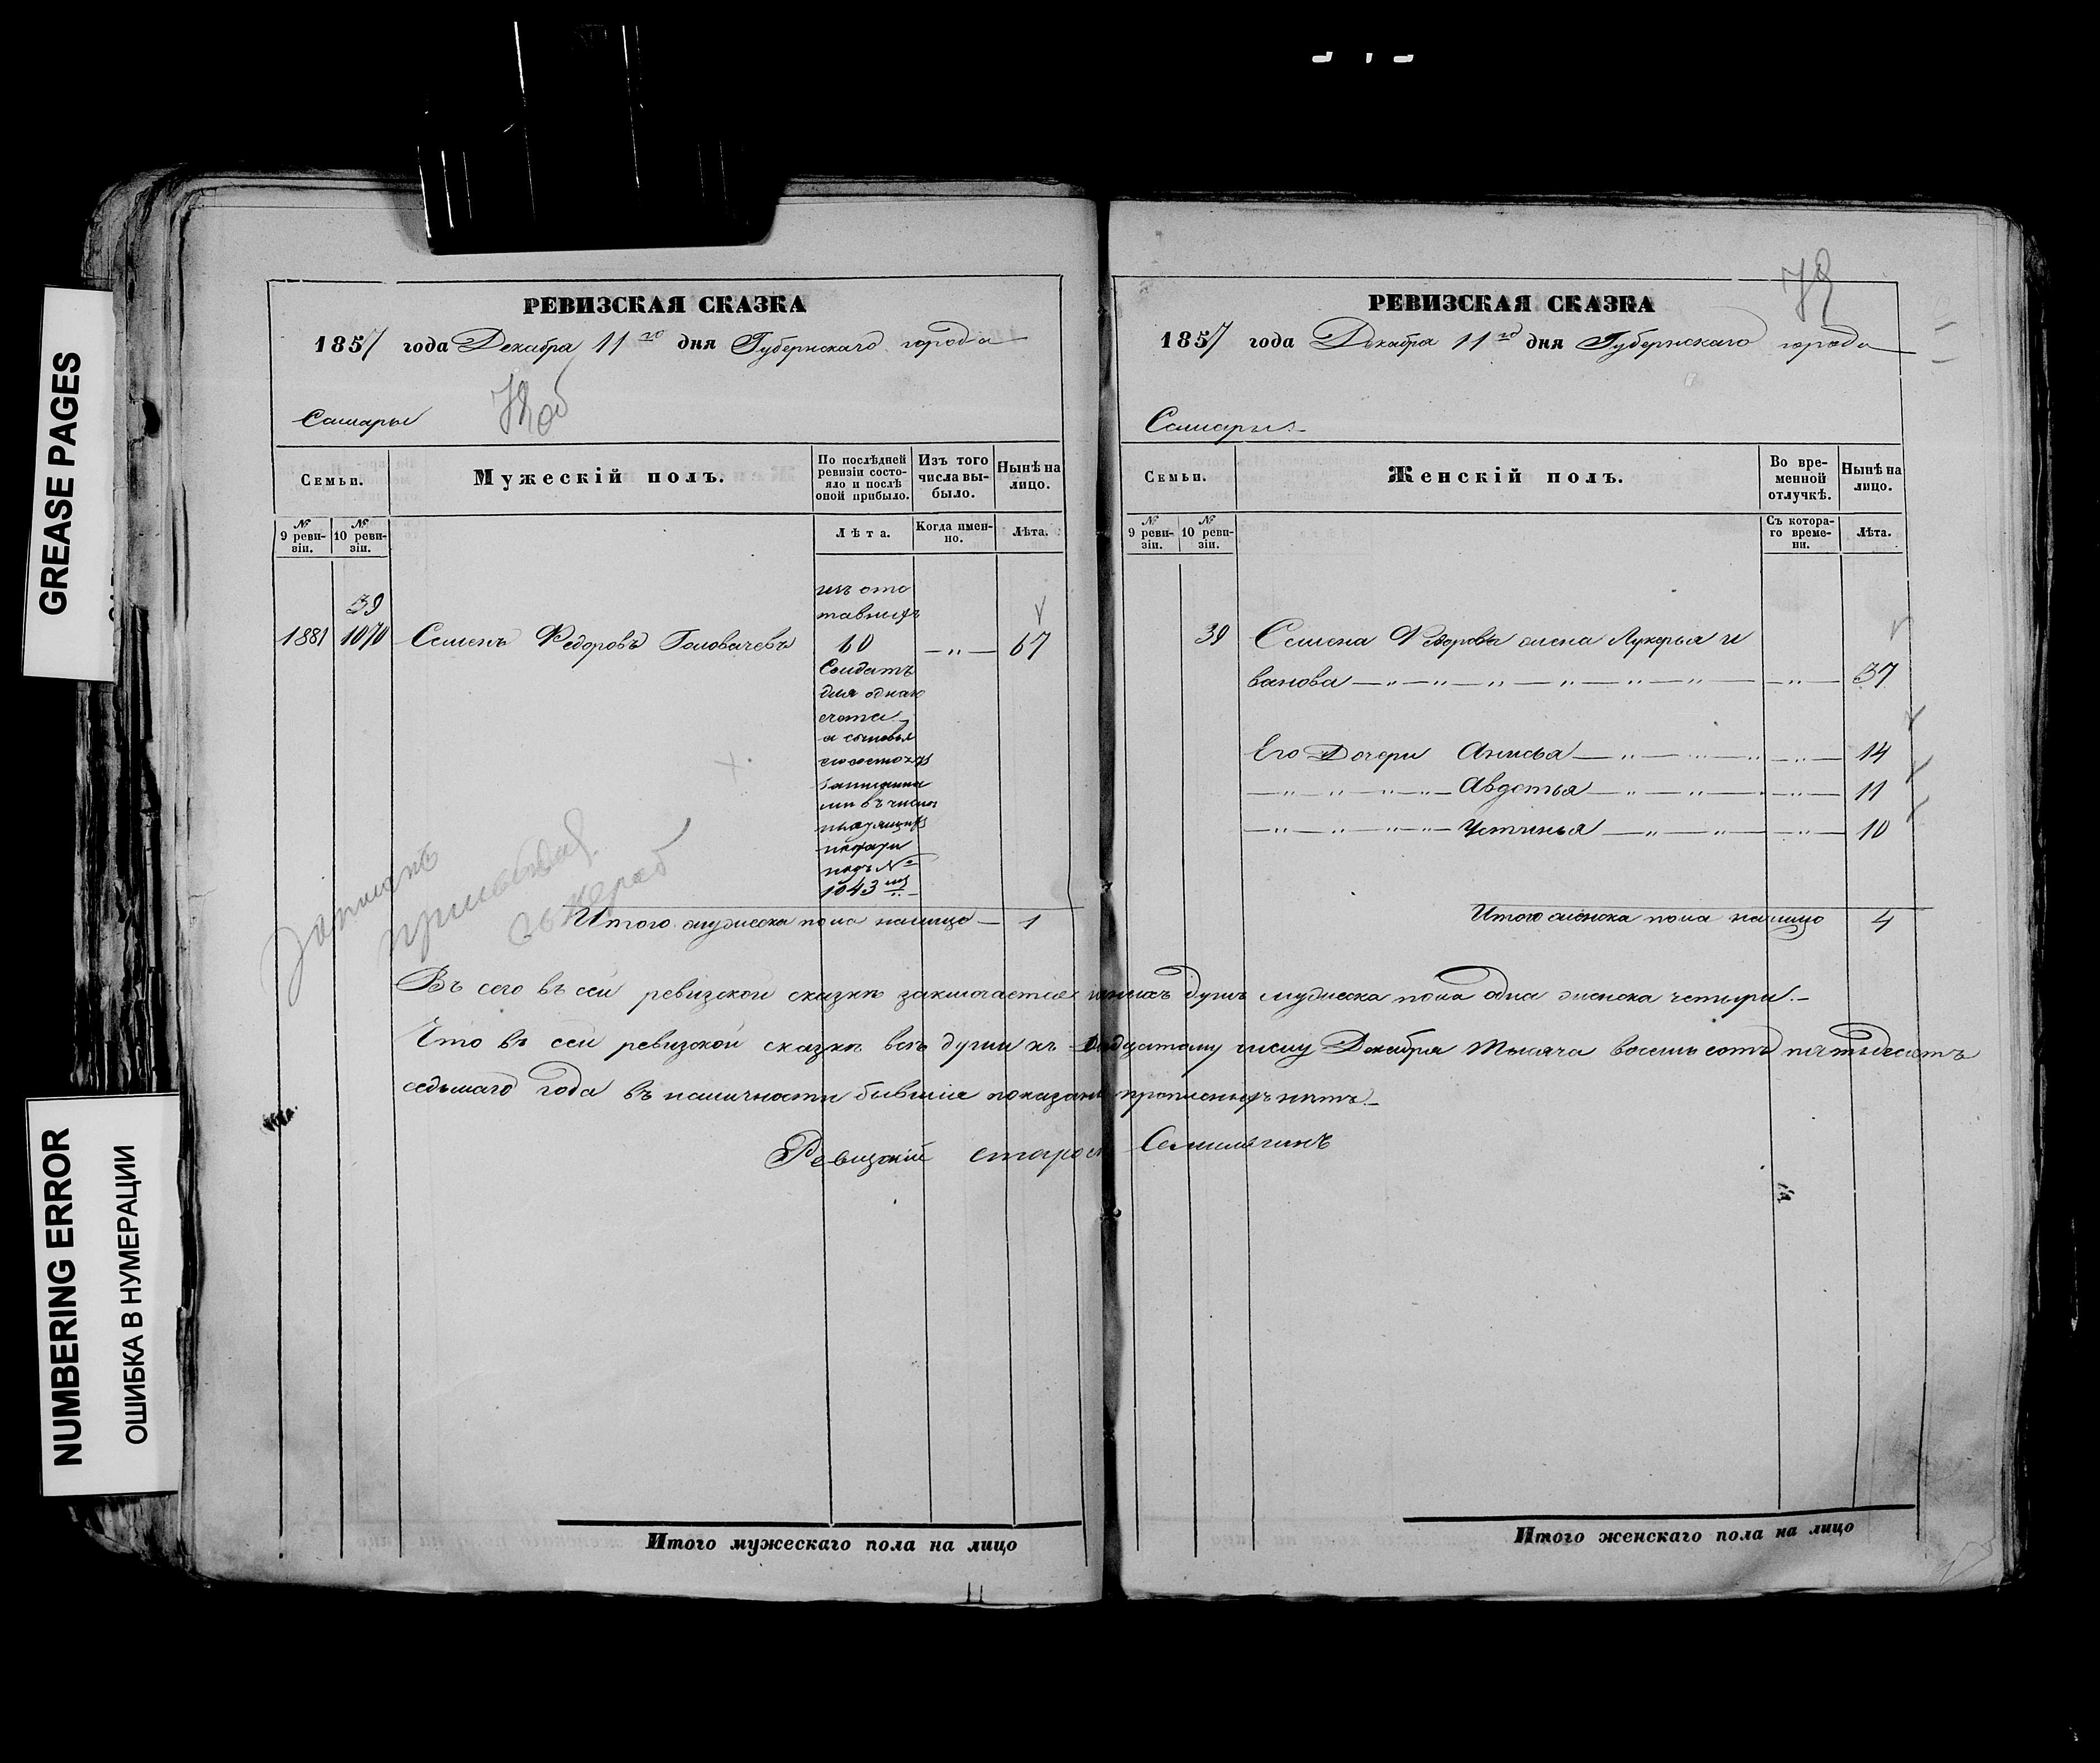 GREASE PAGES
NUMBERING ERROR
ОШИБКА В НУМЕРАЦИИ
РЕВИЗСКАЯ СКАЗКА
1857 года Декабря 11го дня Губернскаго города
Самары
78об
Семьи.
Мужескій полъ.
По послѣдней ревизіи состояло и послѣ оной прибыло.
Изъ того числа выбыло.
Нынѣ на лицо.
№ 9 ревизіи.
№ 10 ревизіи.
Лѣта.
Когда именно.
Лѣта.
изъ отс
тавныхъ
39
1881 1070 Семенъ Федоровъ Головачевъ 60 — „ — 67
Солдатъ
для однаго
счота
а сыновья
его состоятъ
записанна
ми въ числѣ
платящихъ
подати
подъ №
1043
Записать
Итого мужеска пола налицо — 1
РЕВИЗСКАЯ СКАЗКА
78
1857 года Декабря 11го дня Губернскаго города
Самары
Семьи.
Женскій полъ.
Во временной отлучкѣ.
Нынѣ на лицо.
№ 9 ревизіи.
№ 10 ревизіи.
Съ котораго времени.
Лѣта.
39 Семена Федорова жена Лукерья И
ванова — „ — 37
Его Дочери Анисья — „ — 14
— „ — Авдотья — „ — 11
— „ — Устинья — „ — 10
Итого женска пола налицо 4
Въ сего въ сей ревизской сказкѣ заключается наличныхъ душъ мужеска пола одна женска четыре.—
Что въ сей ревизской сказкѣ всѣ души къ Декабря тысяча восемь сотъ пятьдесятъ
седьмаго года въ наличности бывшіе показаны прописныхъ нѣтъ.—
Ревизскій староста
Итого мужескаго пола на лицо
Итого женскаго пола на лицо